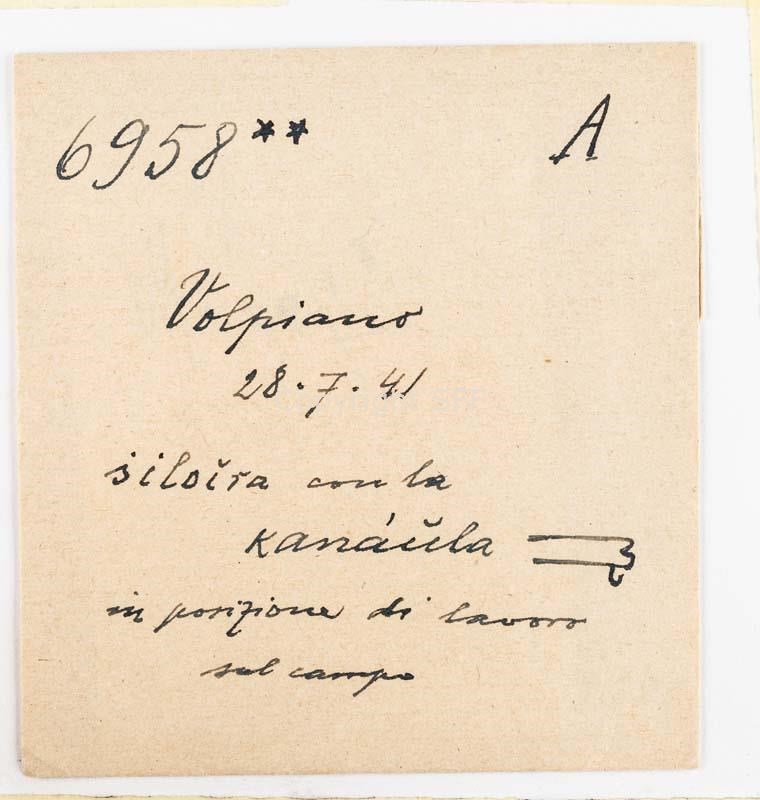 6958** A
Volpiano
28.7.41
con la
kanáŭla
in posizione di lavoro
sul campo